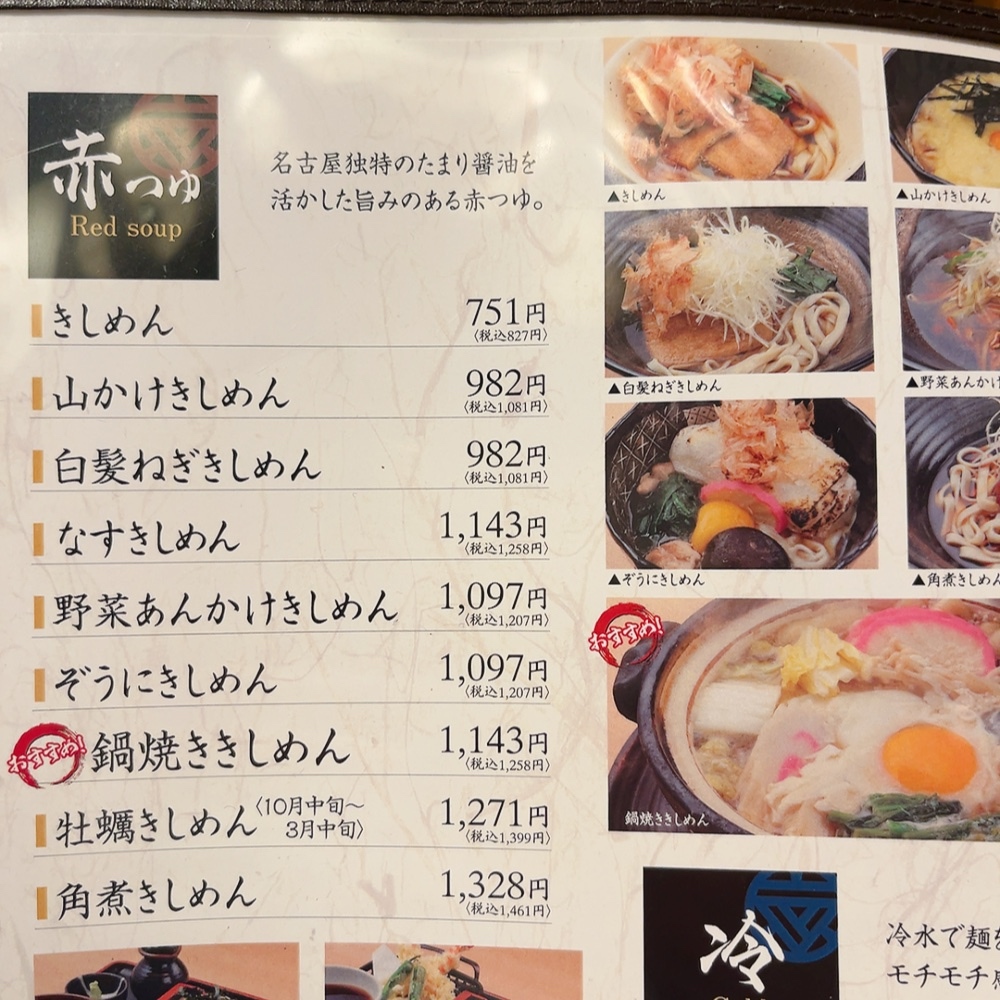 赤つゆ
Red soup
名古屋独特のたまり醤油を
活かした旨みのある赤つゆ。
きしめん 751円
〈税込827円〉
山かけきしめん 982円
〈税込1,081円〉
白髪ねぎきしめん 982円
〈税込1,081円〉
なすきしめん 1,143円
〈税込1,258円〉
野菜あんかけきしめん 1,097円
〈税込1,207円〉
ぞうにきしめん 1,097円
〈税込1,207円〉
おすすめ!
鍋焼ききしめん 1,143円
〈税込1,258円〉
牡蠣きしめん〈10月中旬〜
3月中旬〉 1,271円
〈税込1,399円〉
角煮きしめん 1,328円
〈税込1,461円〉
▲きしめん
▲山かけきしめん
▲白髪ねぎきしめん
▲野菜あんかけ
▲ぞうにきしめん
▲角煮きしめん
おすすめ!
鍋焼ききしめん
冷
冷水で麺を
モチモチ